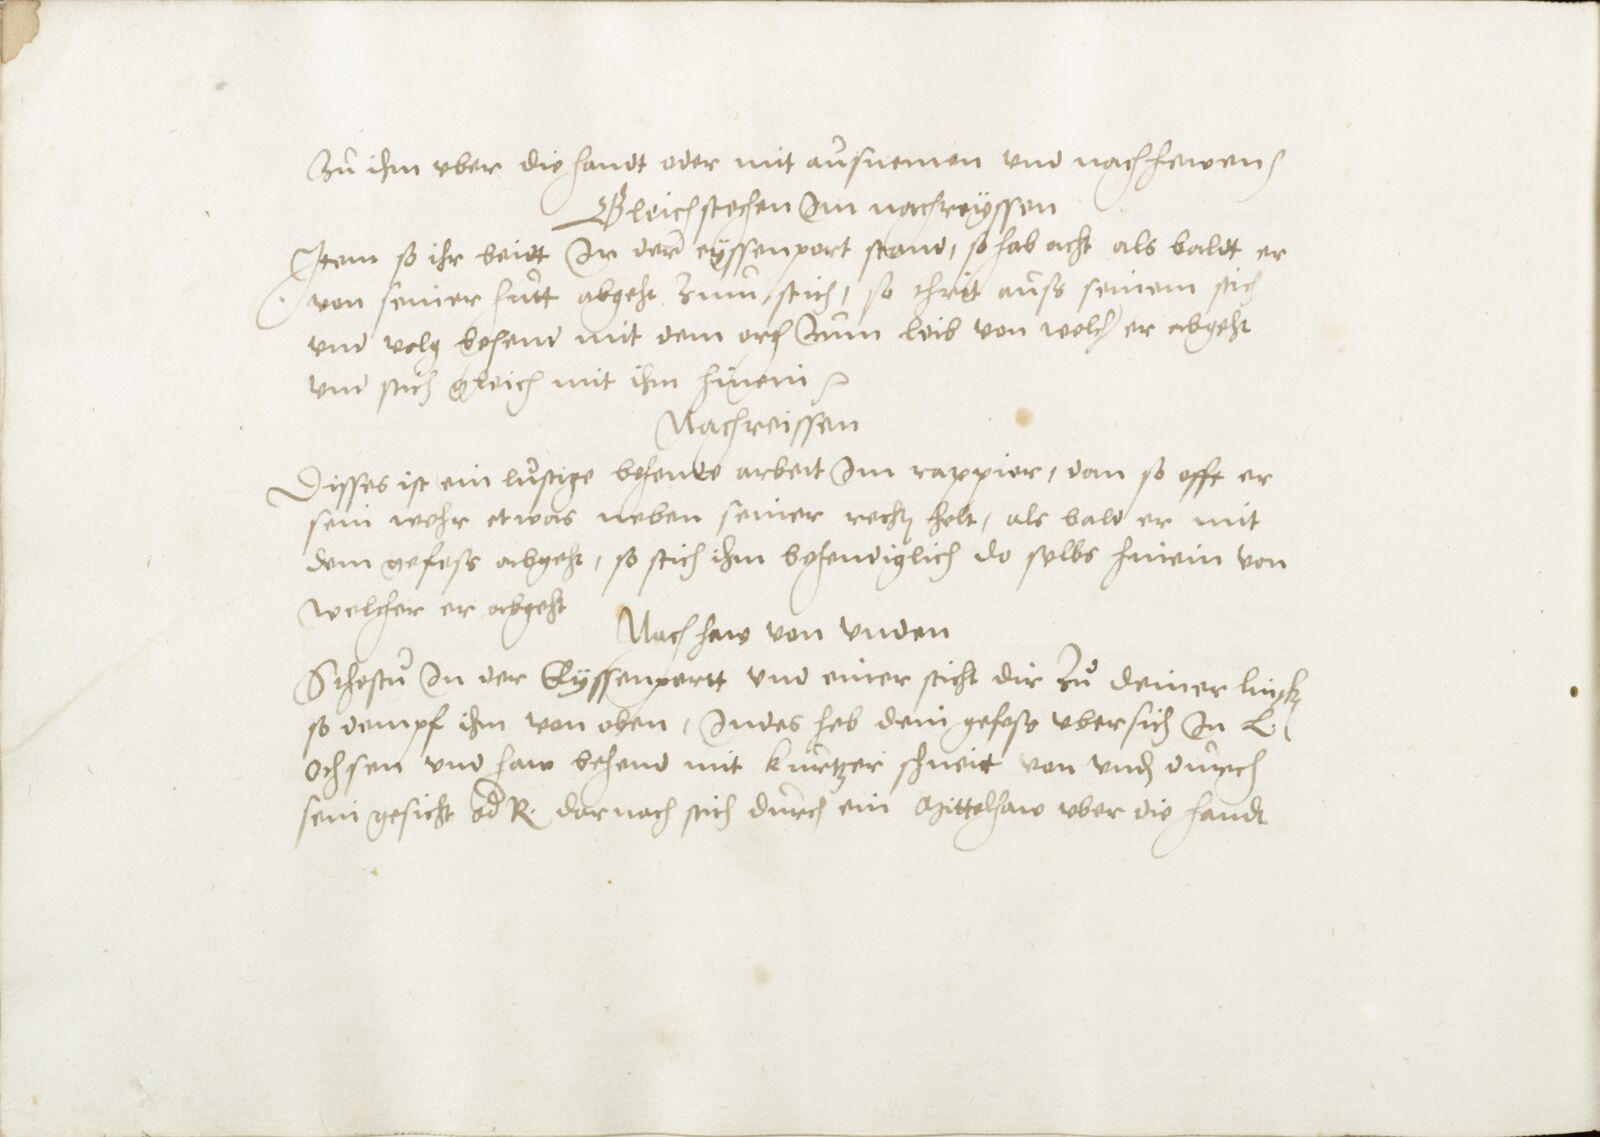 Zu ihm vber die handt oder mit ausnemen vnd nachhewen
Gleichstechen Im nachreyssen
Item so ihr beidt In der eyssenport stand, so hab acht als baldt er
von seiner hutt abgeht zum stich, so schrit auss seinem stich
vnd volg behend mit dem ort Zum leib von welch er abgeht
vnd stich gleich mit ihm hinein
Nachreissen
Disses ist ein lustige behende arbeit Im rappier, dan so offt er
sein wehr etwas neben seiner recht helt, als bald er mit
dem gefess abgeht, so stich ihm behendiglich do selbs hinein von
welcher er abgeht
Nachhaw von vnden
Sthestu In der Eyssenportt vnd einer sticht dir Zu deiner linck
so dempf ihm von oben, Indes heb dein gefess vbersich In L.
Ochsen vnd haw behend mit kurtzer schneit von vnd durch
sein gesicht od R. darnach stich durch ein Mittelhaw vber die handt